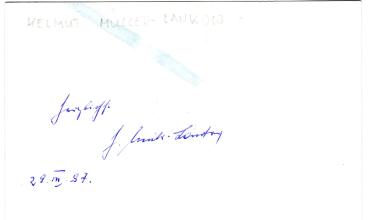 HELMUT MÜLLER-LANKOW
Herzlichst
H. Müller-Lankow
29. III. 87.